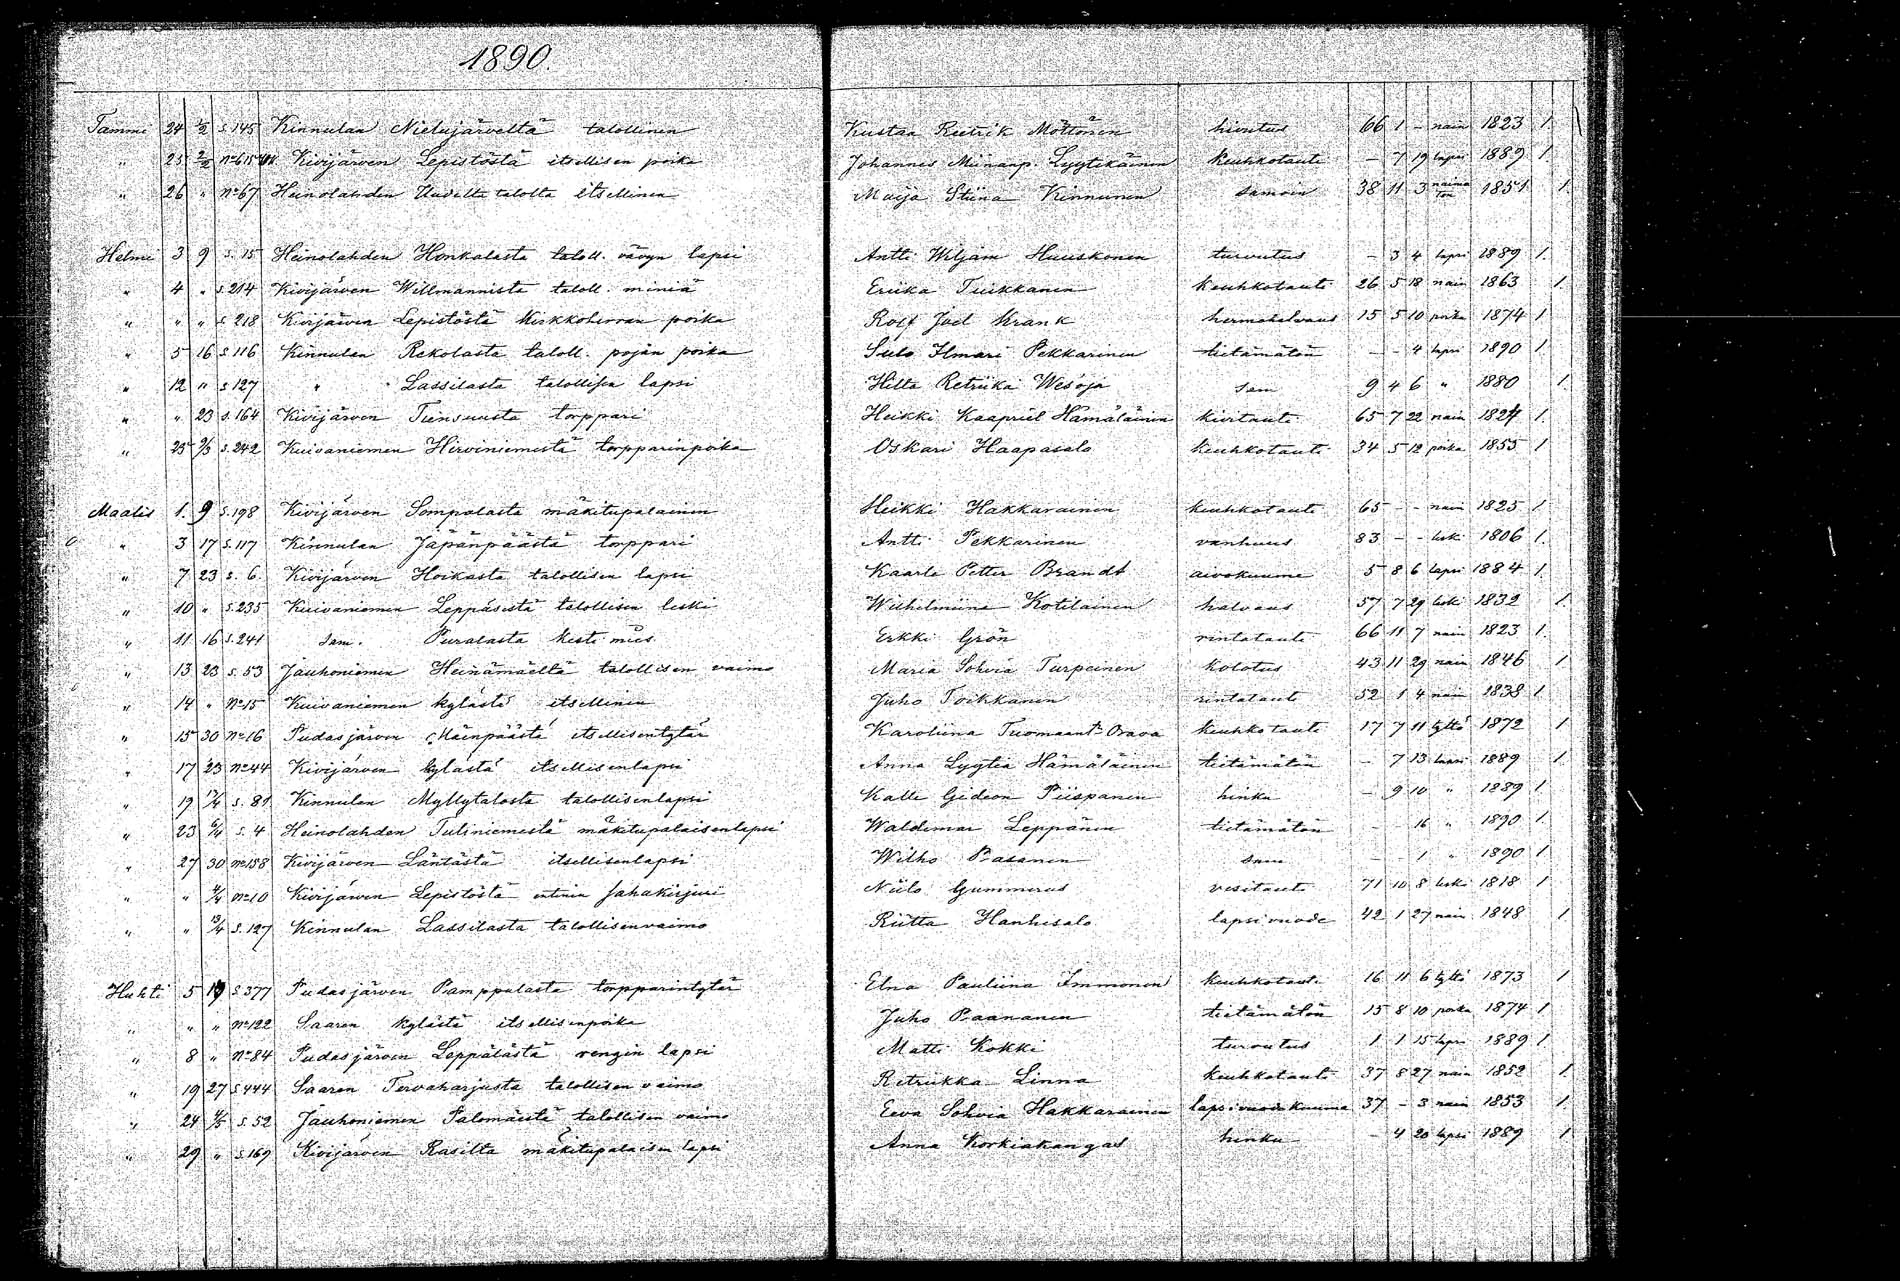 1890.
Tammi 24 2/2 s.145 Kinnulan Nielujärveltä talollinen Kustaa Retrik Möttönen hivutus 66 1 - nain 1823 1.
" 25 2/2 Kivijärven Lepistöstä itsellisen poika Johannes Miinanp. Lyytikäinen keuhkotauti - 7 19 lapsi 1889 1.
" 26 " No 67 Heinolahden Uudelta talolta itsellinen Maija Stiina Kinnunen samoin 38 11 3 naima ton 1851 1.
Helmi 3 9 s. 15 Heinolahden Honkalasta taloll. vävyn lapsi Antti Wiljam Huuskonen turvutus - 3 4 lapsi 1889 1.
" 4 " s 214 Kivijärven Willmannista taloll. miniä Eriika Tiikkanen keuhkotauti 26 5 18 nain 1863 1.
" " " s. 218 Kivijärven Lepistöstä Kirkkoherran poika Rolf Joel Krank hermohalvaus 15 5 10 poika 1874 1
" 5 16 s 116 Kinnulan Rekolasta taloll. pojan poika Sulo Ilmari Pekkarinen tietämätön - - 4 lapsi 1890 1.
" 12 " s 127 " Lassilasta talollisen lapsi Hilta Retriika Wesoja sam 9 4 6 " 1880 1.
" " 23 s. 164 Kivijärven Tiensuusta torppari Heikki Kaapriel Hämäläinen kivitauti 65 7 22 nain 1824 1.
" 25 2/3 s. 242 Kuivaniemen Hirviniemestä torpparinpoika Oskari Haapasalo keuhkotauti 34 5 12 poika 1855 1
Maalis 1. 9 s. 198 Kivijärven Sompalasta mäkitupalainen Heikki Hakkarainen keuhkotauti 65 - - nain 1825 1
" 3 17 s. 117 Kinnulan Jäpänpäästä torppari Antti Pekkarinen vanhuus 83 - - leski 1806 1.
" 7 23 s. 6 Kivijärven Hoikasta talollisen lapsi Kaarle Petter Brandt aivokuume 5 8 6 lapsi 1884 1.
" 10 " s. 235 Kuivaniemen Leppäsestä talollisen leski Wilhelmiina Kotilainen halvaus 57 7 29 leski 1832 1.
" 11 16 s. 241 sam. Puralasta kesti mies Erkki Grön rintatauti 66 11 7 nain 1823 1.
" 13 23 s. 53 Jauhoniemen Heinämäeltä talollisen vaimo Maria Sohvia Turpeinen kolotus 43 11 29 nain 1846 1
" 14 " No 15 Kuivaniemen kylästä itsellinen Juho Toikkanen rintatauti 52 1 4 nain 1838 1.
" 15 30 No 16 Pudasjärven Mäenpäästä itsellisentytär Karoliina Tuomaant. Orava keuhkotauti 17 7 11 tyttö 1872 1
" 17 23 No 44 Kivijärven kylästä itsellisenlapsi Anna Lyytia Hämäläinen tietämätön - 7 13 lapsi 1889 1.
" 19 13/4 s. 81 Kinnulan Myllytalosta talollisenlapsi Kalle Gideon Piispanen hinku - 9 10 " 1889 1
" 23 6/4 s. 4 Heinolahden Tuliniemestä mäkitupalaisenlapsi Waldemar Leppänen tietämätön - - 16 " 1890 1.
" 27 30 No 158 Kivijärven Läntästä itsellisenlapsi Wilho Pasanen sam - - 1 " 1890 1
" " 4/4 No 10 Kivijärven Lepistöstä entinen Jahakirjuri Niilo Gummerus vesitauti 71 10 8 leski 1818 1
" " 13/4 s. 127 Kinnulan Lassilasta talollisenvaimo Riitta Hanhisalo lapsivuode 42 1 27 nain 1848 1
Huhti 5 s 377 Pudasjärven Pamppulasta torpparintytär Elna Pauliina Immonen keuhkotauti 16 11 6 tyttö 1873 1
" " " No 122 Saaren kylästä itsellisenpoika Juho Paananen tietämätön 15 8 10 poika 1874 1
" 8 " No 84 Pudasjärven Leppälästä rengin lapsi Matti Kokki turvutus 1 1 15 lapsi 1889 1
" 19 27 s 444 Saaren Tervaharjusta talollisen vaimo Retriikka Linna keuhkotauti 37 8 27 nain 1852 1.
" 24 4/5 s. 52 Jauhoniemen Palomäestä talollisen vaimo Eeva Sohvia Hakkarainen lapsivuodekuume 37 - 3 nain 1853 1.
" 29 " s. 169 Kivijärven Rasilta mäkitupalaisen lapsi Anna Korkiakangas hinku - 4 20 lapsi 1889 1